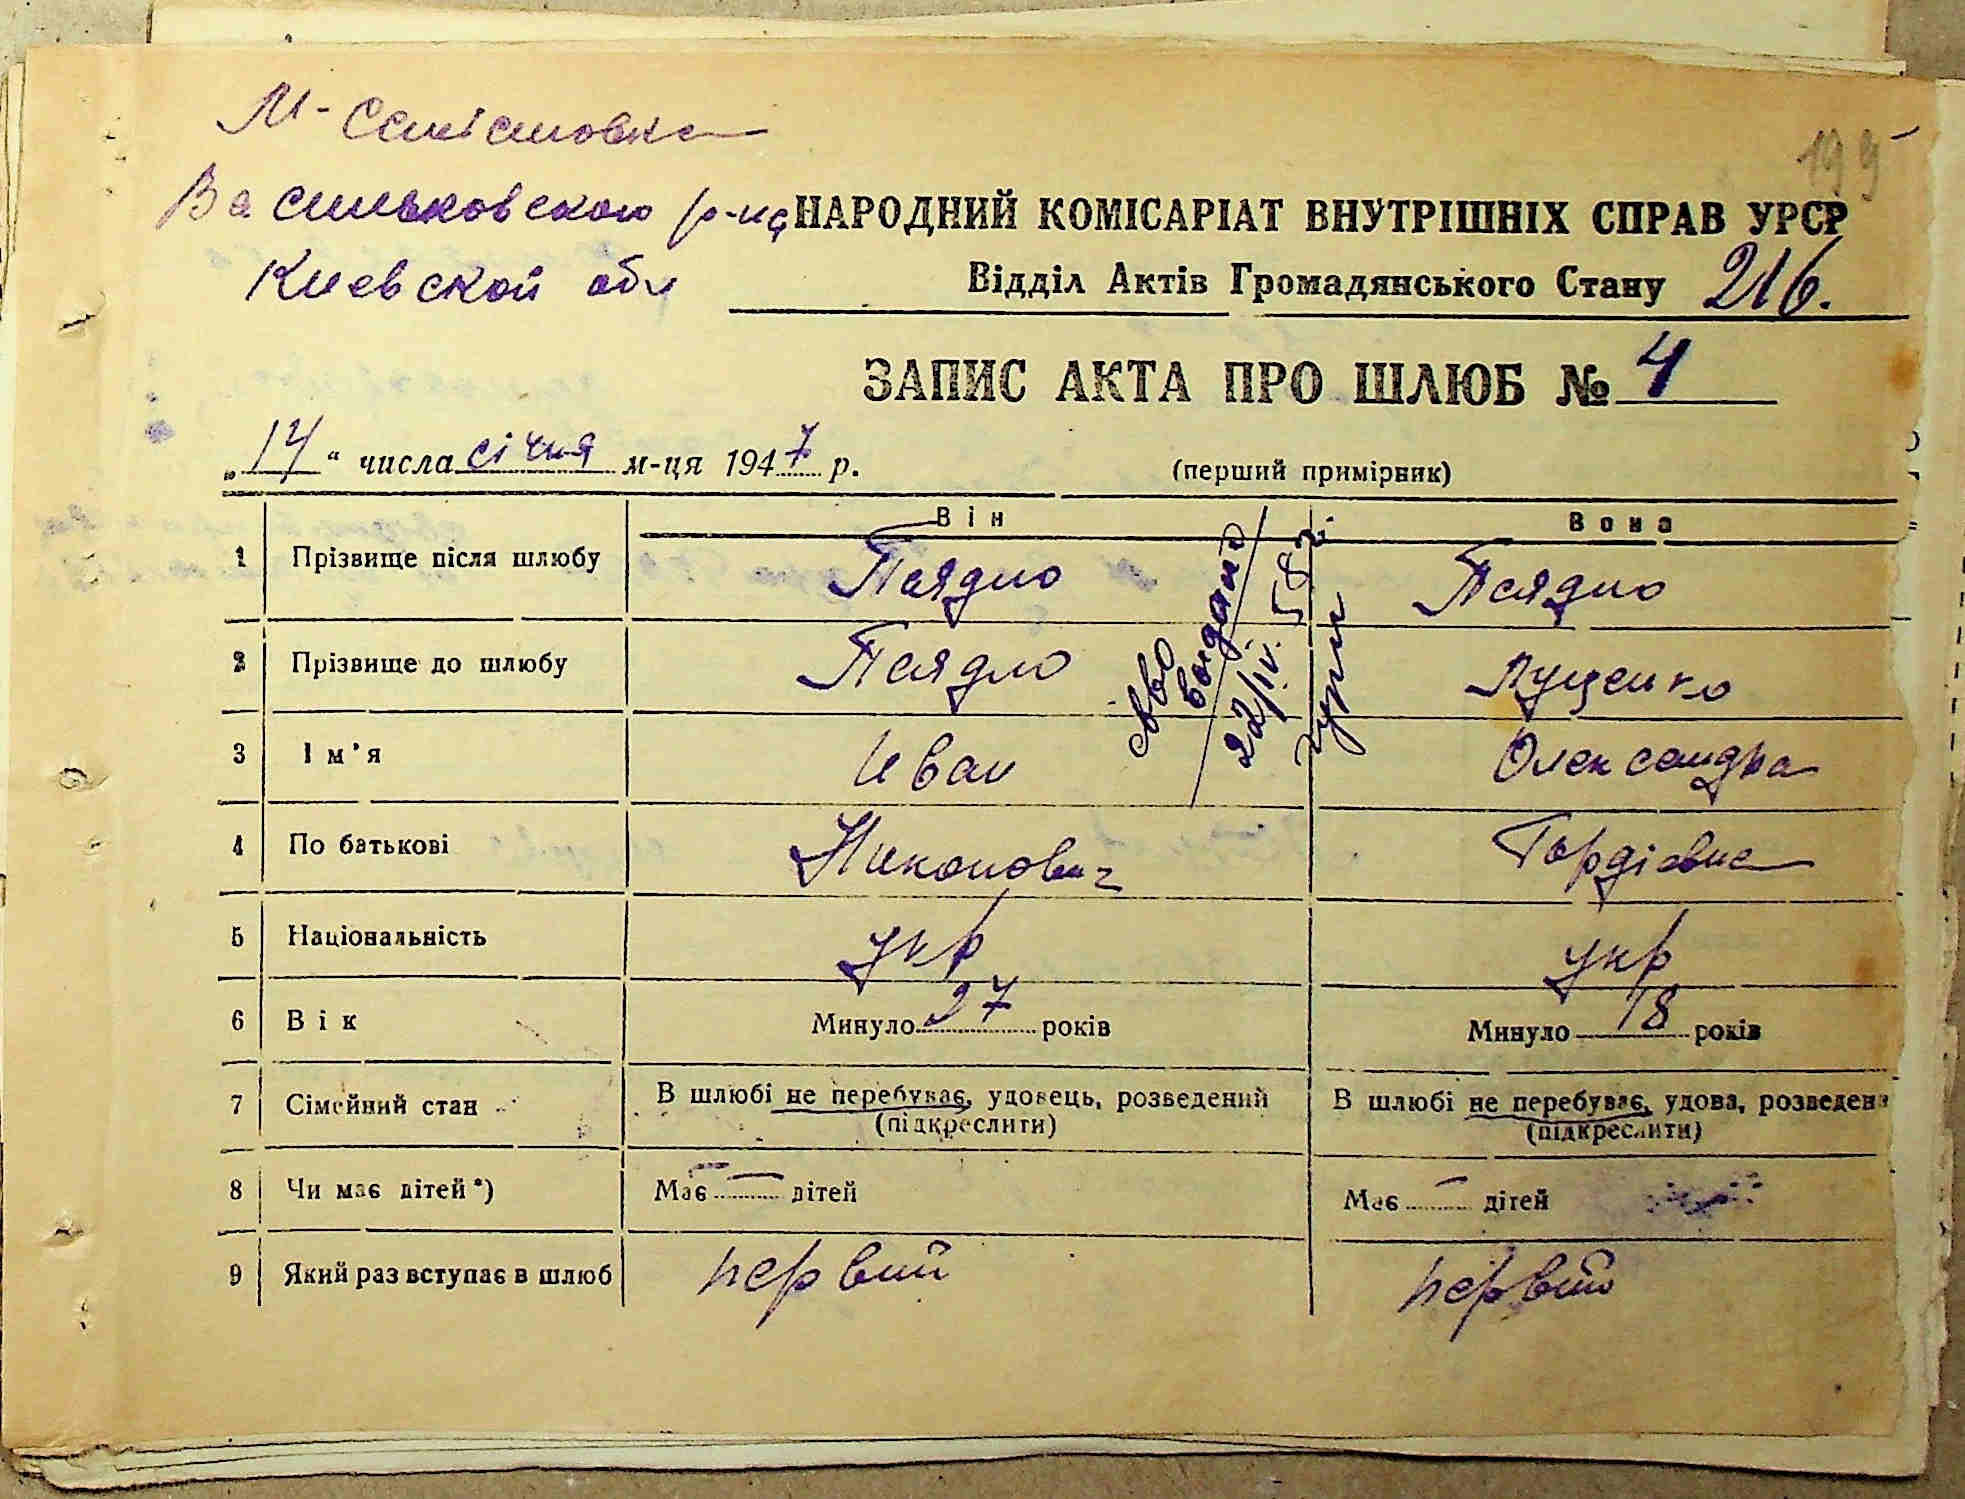 М-Салтановка
Васильковского р-на
Киевской обл
199
НАРОДНИЙ КОМІСАРІАТ ВНУТРІШНІХ СПРАВ УРСР
Відділ Актів Громадянського Стану 216.
ЗАПИС АКТА ПРО ШЛЮБ № 4
„14“ числа січня м-ця 1947 р.
(перший примірник)
Він Вона
1 Прізвище після шлюбу
2 Прізвище до шлюбу Лущенко
3 Ім’я Иван Олександра
4 По батькові Никонович Гордієвна
5 Національність укр укр
6 Вік Минуло 27 років Минуло 18 років
7 Сімейний стан В шлюбі не перебуває, удовець, розведений В шлюбі не перебуває, удова, розведена
(підкреслити) (підкреслити)
8 Чи має дітей*) Має — дітей Має — дітей
9 Який раз вступає в шлюб первий первий
22/IV. 58 г.